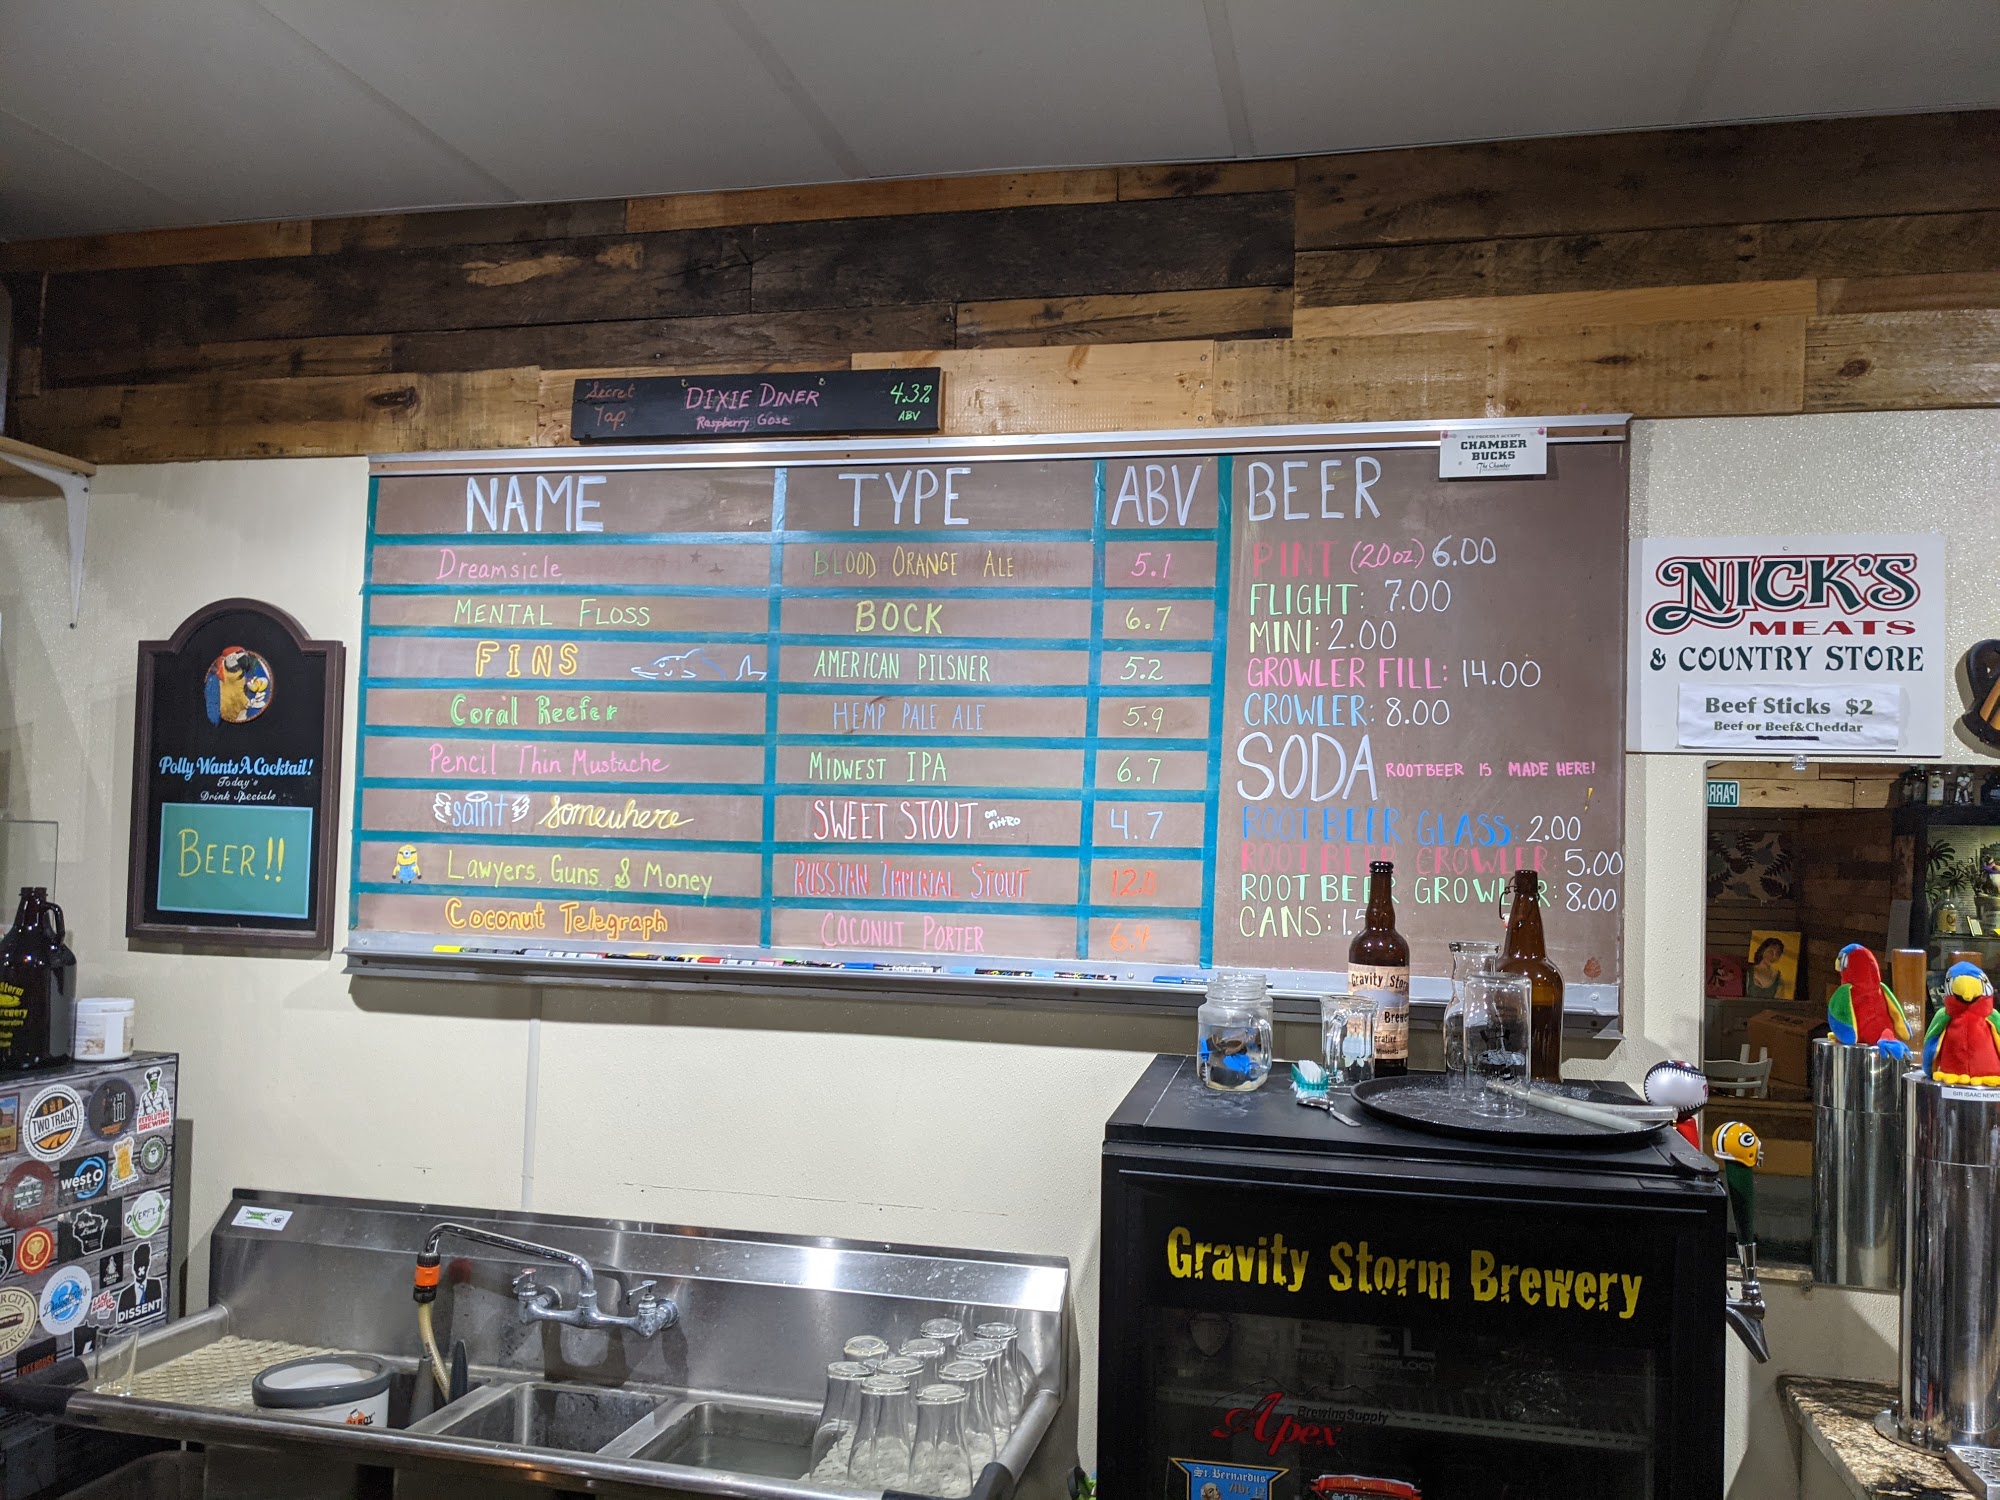 "Secret Tap"
"DIXIE DINER"
Raspberry Gose
4.3%
ABV
WE PROUDLY ACCEPT
CHAMBER
BUCKS
The Chamber
NAME TYPE ABV
Dreamsicle BLOOD ORANGE ALE 5.1
MENTAL FLOSS BOCK 6.7
FINS AMERICAN PILSNER 5.2
Coral Reefer HEMP PALE ALE 5.9
Pencil Thin Mustache MIDWEST IPA 6.7
saint somewhere SWEET STOUT on nitro 4.7
Lawyers, Guns & Money RUSSIAN IMPERIAL STOUT 12.0
Coconut Telegraph COCONUT PORTER 6.4
BEER
PINT (20oz.) 6.00
FLIGHT: 7.00
MINI: 2.00
GROWLER FILL: 14.00
CROWLER: 8.00
SODA ROOTBEER IS MADE HERE!
ROOT BEER GLASS: 2.00
ROOT BEER CROWLER: 5.00
ROOT BEER GROWLER: 8.00
CANS: 1.5
Polly Wants A Cocktail!
Today's
Drink Specials
BEER!!
NICK'S
MEATS
& COUNTRY STORE
Beef Sticks $2
Beef or Beef&Cheddar
PARR
Gravity Storm
Brewe
Storm
rewery
TWO TRACK
REVOLUTION
BREWING
west O
OVERFLOW
Drink Local
DISSENT
SIR ISAAC NEWTO
Gravity Storm Brewery
TECHNOLOGY
Apex
Brewing Supply
St. Bernardus
Abt 12